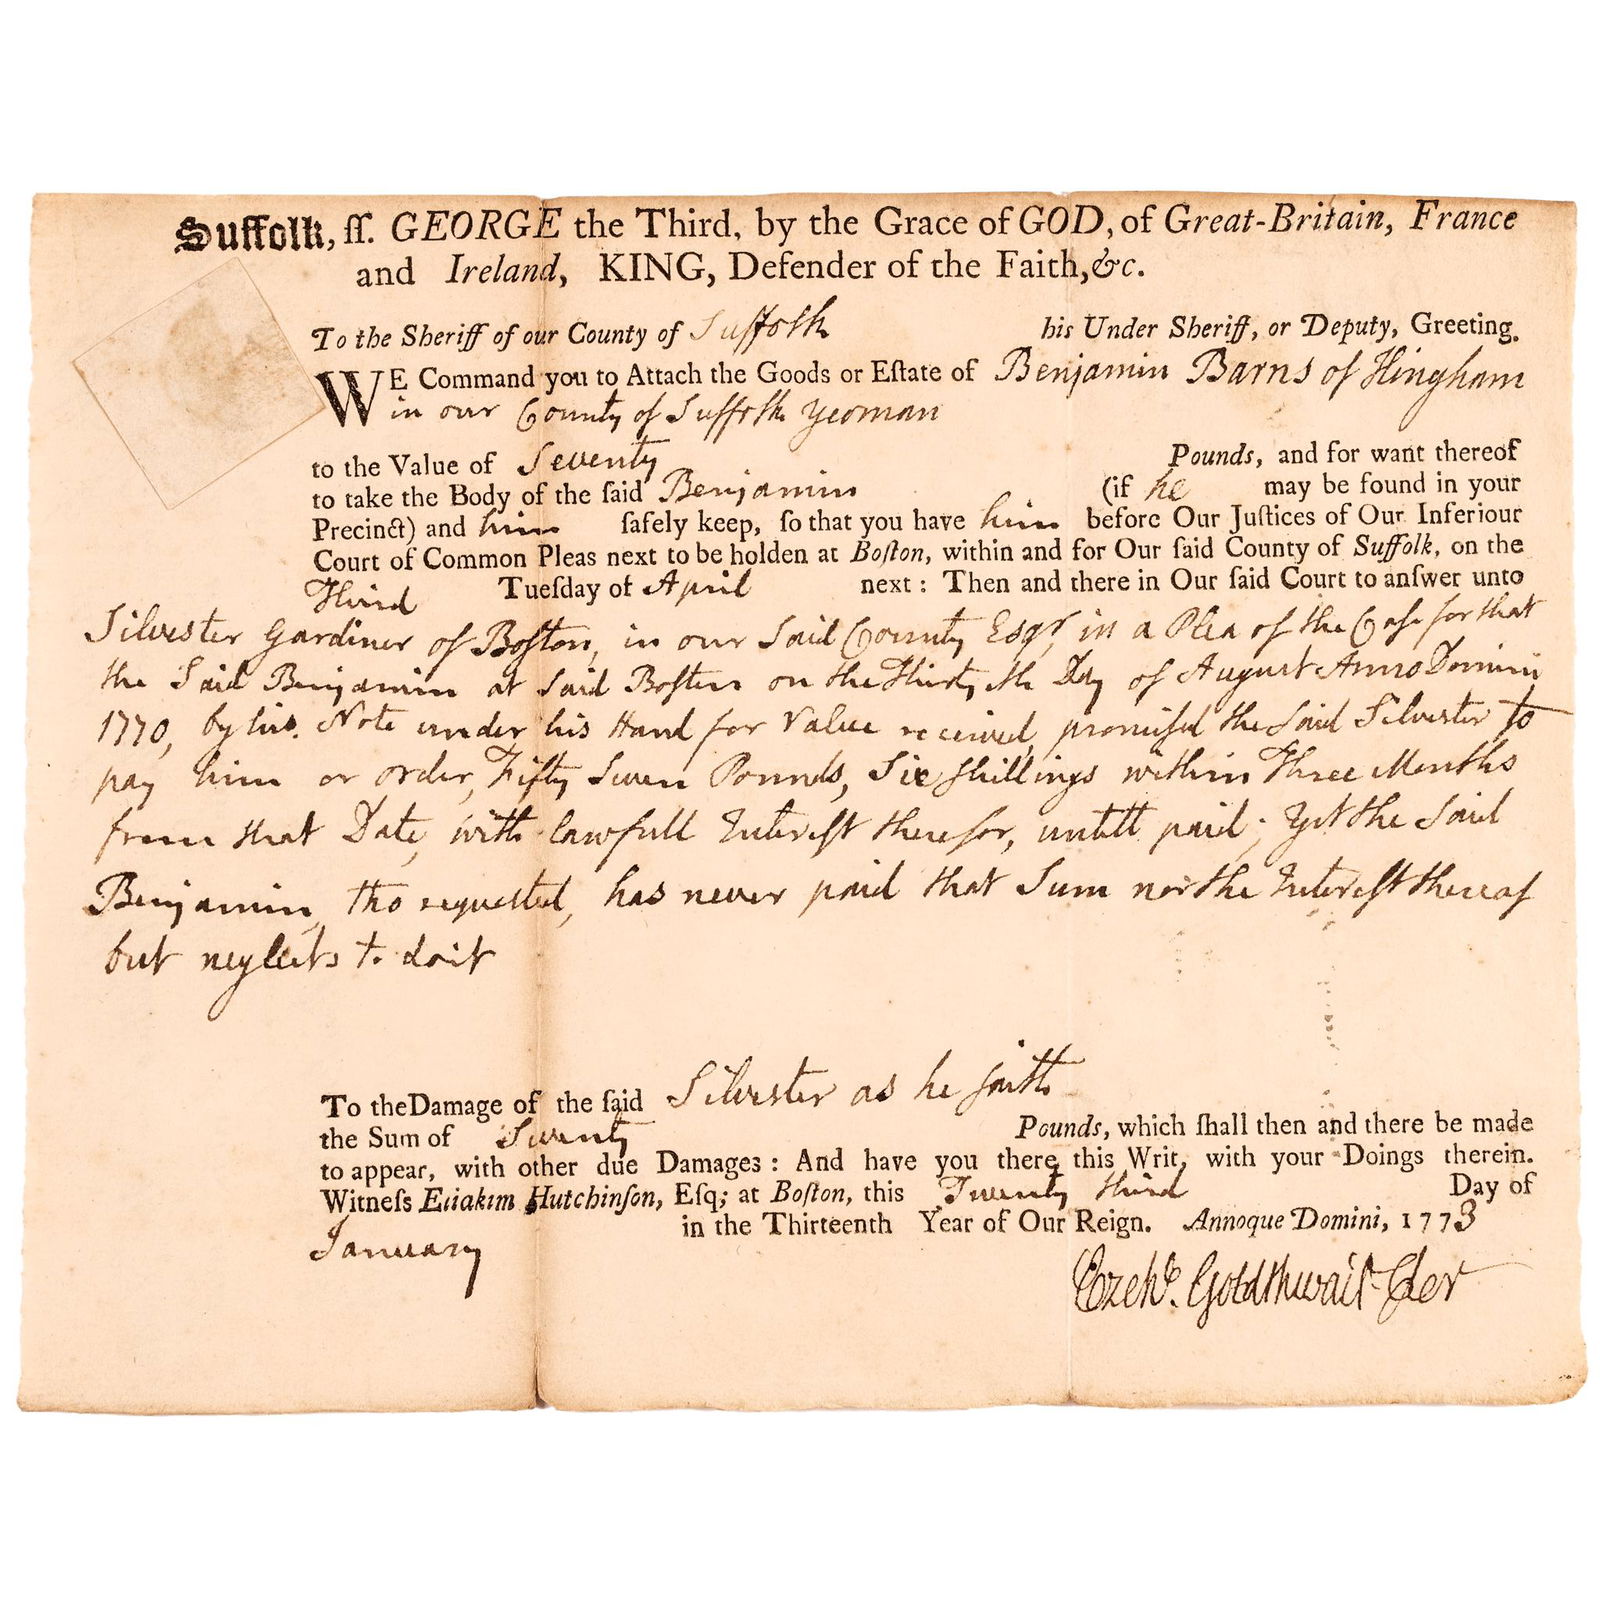 Suffolk, ſſ. GEORGE the Third, by the Grace of GOD, of Great-Britain, France
and Ireland, KING, Defender of the Faith, &c.
To the Sheriff of our County of Suffolk his Under Sheriff, or Deputy, Greeting.
WE Command you to Attach the Goods or Eſtate of Benjamin Barns of Hingham
in our County of Suffolk Yeoman
to the Value of Seventy Pounds, and for want thereof
to take the Body of the ſaid Benjamin (if he may be found in your
Precinct) and him ſafely keep, ſo that you have him before Our Juſtices of Our Inferiour
Court of Common Pleas next to be holden at Boſton, within and for Our ſaid County of Suffolk, on the
Third Tueſday of April next: Then and there in Our ſaid Court to anſwer unto
Silvester Gardiner of Boſton, in our Said County Esqr, in a Plea of the Caſe for that
the Said Benjamin at Said Boſton on the Thirtyeth Day of August Anno Domini
1770, by his Note under his Hand for Value received, promiſed the Said Silvester to
pay him or order, Fifty Seven Pounds, Six Shillings within Three Months
from that Date, with lawfull Intereſt therefor, untill paid; Yet the Said
Benjamin, tho requested, has never paid that Sum nor the Intereſt thereof
but neglects to do it
To the Damage of the ſaid Silvester as he ſaith
the Sum of Seventy Pounds, which ſhall then and there be made
to appear, with other due Damages: And have you there this Writ, with your Doings therein.
Witneſs Eliakim Hutchinſon, Eſq; at Boſton, this Twenty third Day of
January in the Thirteenth Year of Our Reign. Annoque Domini, 1773
Ezekl. Goldthwait Cler